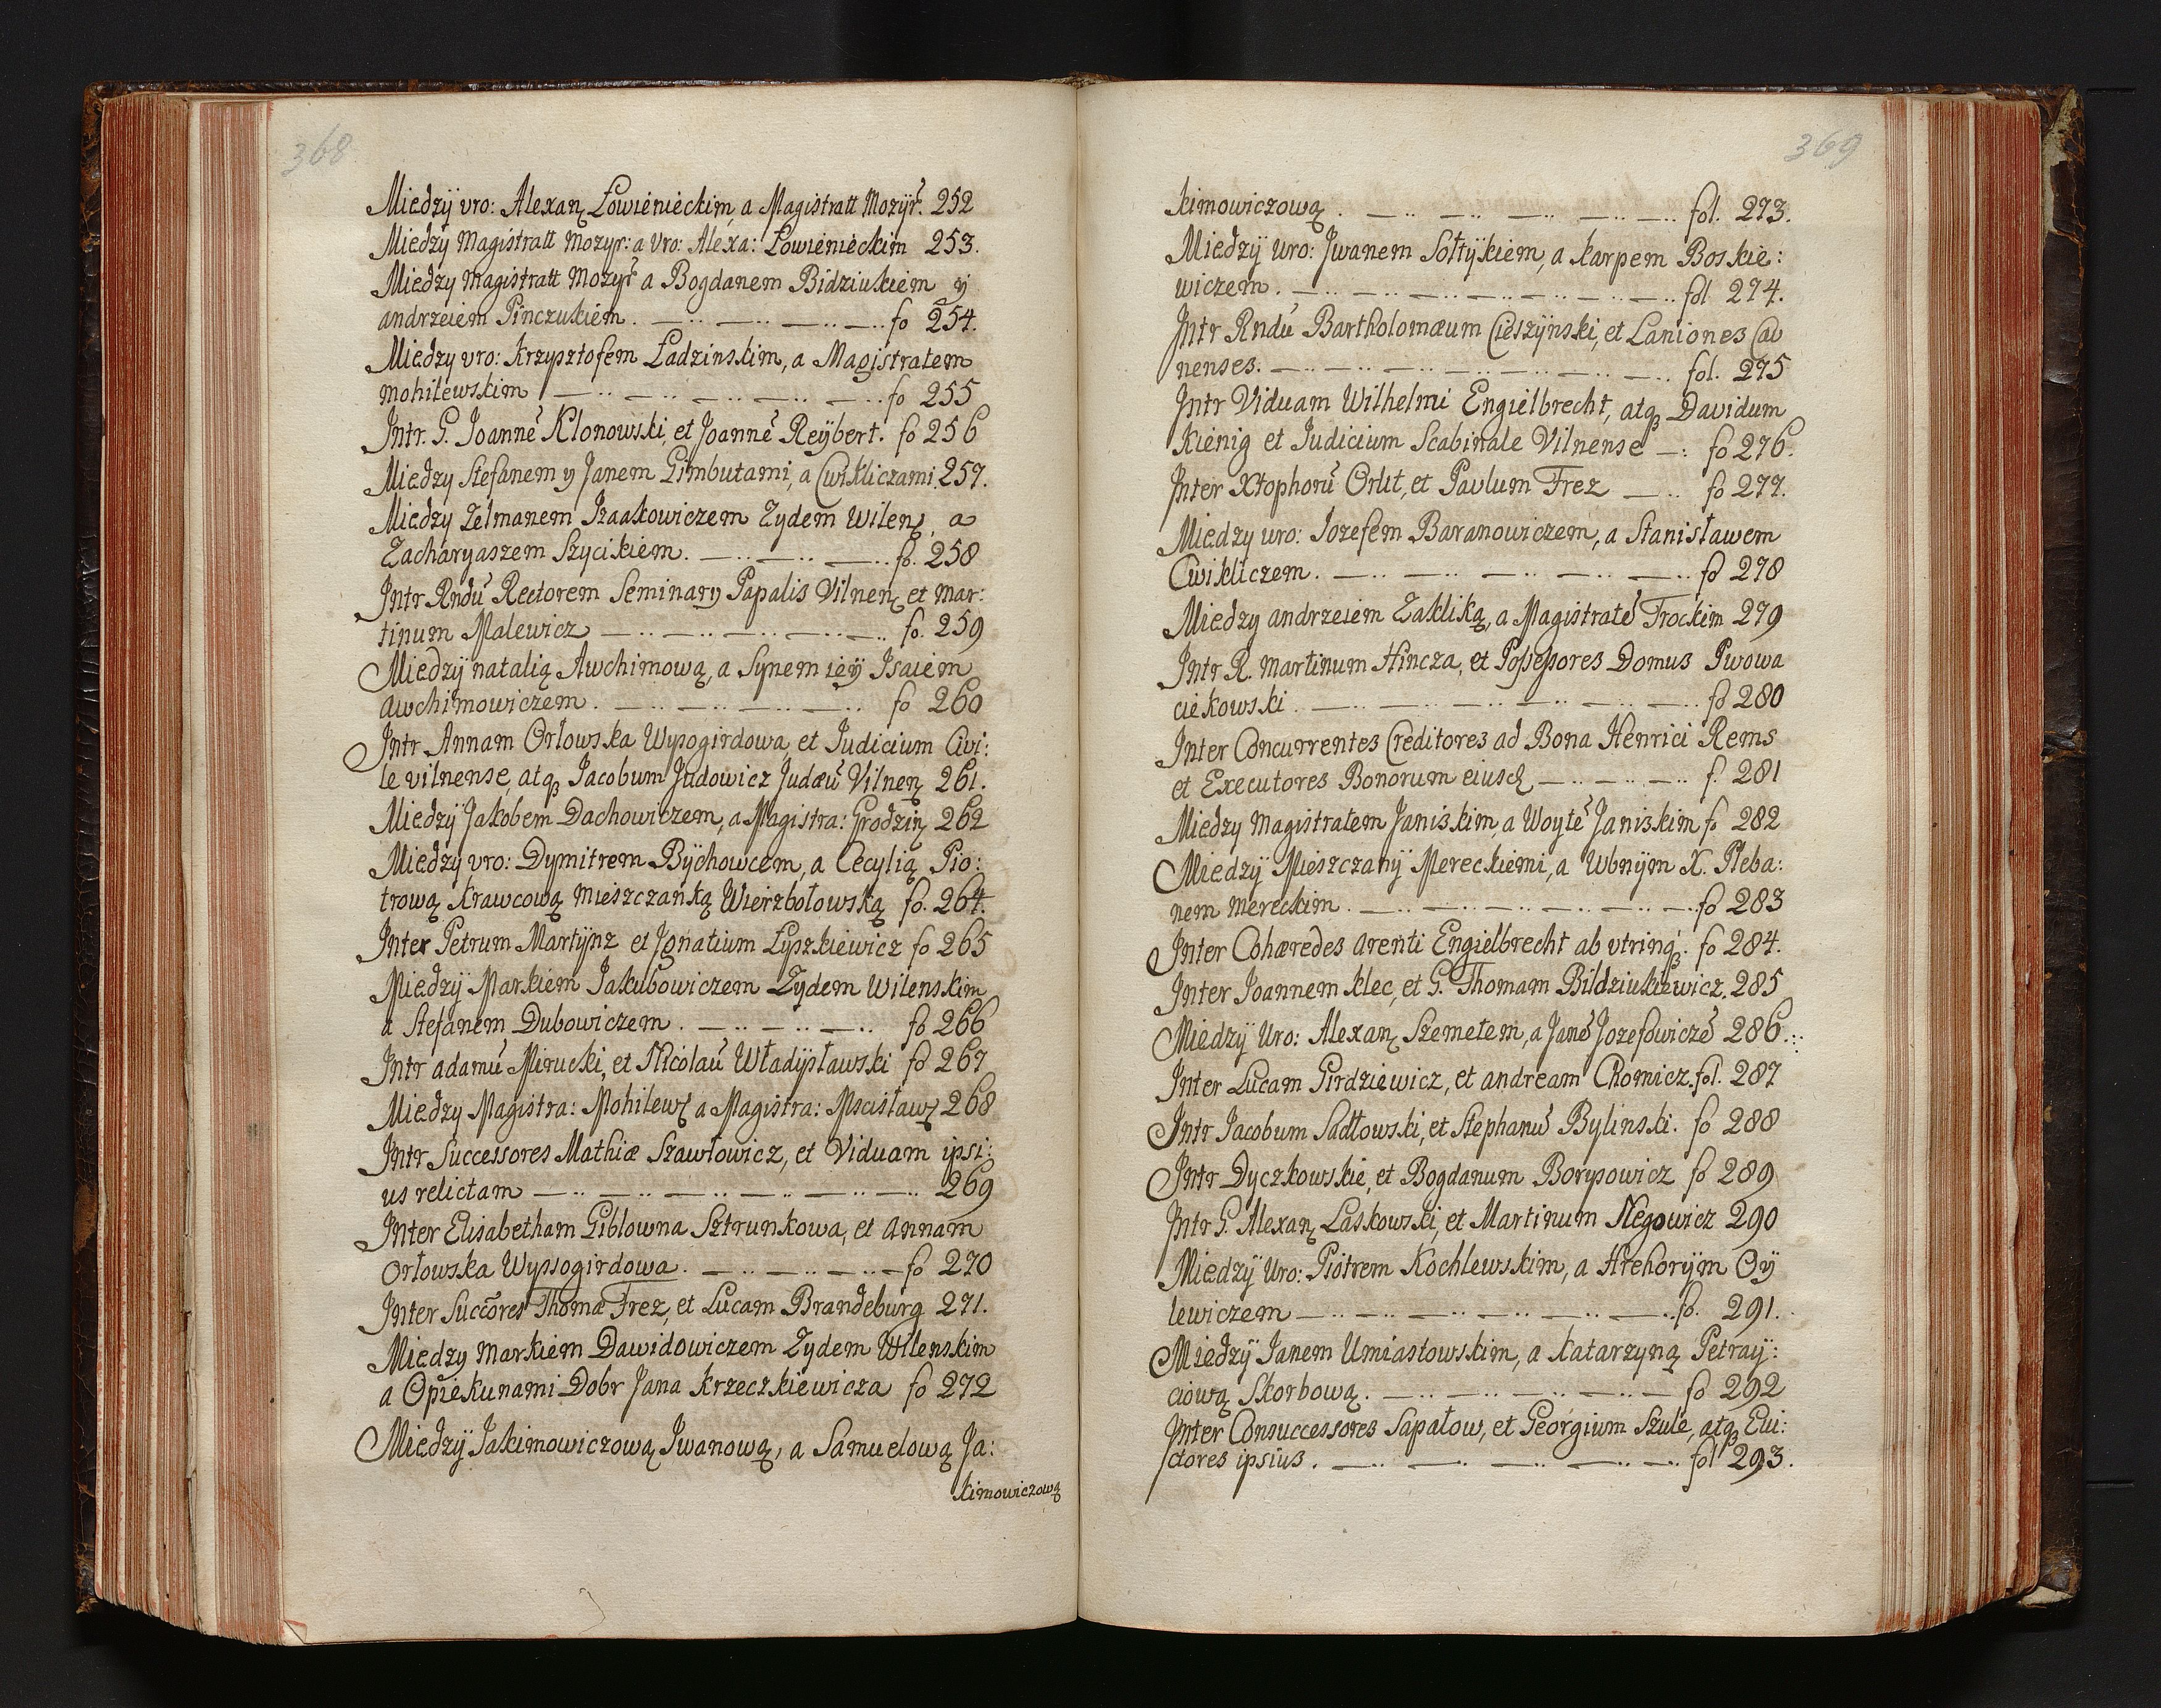 368
Miedzÿ vro: Alexanꝫ Łowienieckim, a Magistratt Mozÿr̃. 252
Miedzy Magistratt Mozyr: a Vro: Alexa: Łowienieckim 253.
Miedzy Magistratt Mozyr̃ a Bogdanem Bidziukiem y
andrzeiem Pinczukiem. — ·· — ·· — ·· — ·· fo 254.
Miedzy vro: Krzysztofem Ładzinskim, a Magistratem
Mohilewskim — ·· — ·· — ·· — ·· — ·· fo 255
Intr. G. Joannē Klonowski, et Joannē Reÿbert. fo 256
Miedzy Stefanem y Janem Gimbutami, a Cwikliczami. 257.
Miedzy Zelmanem Izaakowiczem Zydem Wilenꝫ, a
Zacharyaszem Szycikiem. — ·· — ·· — ·· fo. 258
Intr Rndū Rectorem Seminary Papalis Vilnenꝫ et Mar:
tinum Malewicz — ·· — ·· — ·· — ·· — ·· fo. 259
Miedzÿ natalią Awchimową, a Synem ieÿ Isaiem
Awchimowiczem. — ·· — ·· — ·· — ·· fo 260
Intr Annam Orłowska Wyssogirdowa, et Judicium Civi:
le vilnense, atqꝫ Jacobum Judowicz Judæū Vilnenꝫ 261.
Miedzÿ Jakobem Dachowiczem, a Magistra: Grodzinꝫ 262
Miedzÿ vro: Dymitrem Bÿchowcem, a Cecylią Pio:
trową Krawcową Mieszczańką Wierzbołowską fo. 264.
Inter Petrum Martÿnz et Ignatium Łyszkiewicz fo 265
Miedzÿ Markiem Jakubowiczem Zydem Wilenskim
a Stefanem Dubowiczem. — ·· — ·· — ·· fo 266
Intr adamū Mirucki, et Nicolaū Władÿsławski fo 267
Miedzy Magistra: Mohilewꝫ a Magistra: Mscisławꝫ 268
Intr Successores Mathiæ Szawłowicz, et Viduam ipsi:
us relictam — ·· — ·· — ·· — ·· — ·· — ·· 269
Inter Elisabetham Giblowna Sztrunkowa, et Annam
Orłowska Wyssogirdowa. — ·· — ·· — ·· — fo 270
Inter Succōres Thomæ Frez, et Lucam Brandeburg 271.
Miedzy Markiem Dawidowiczem Zydem Wilenskim
a Opiekunami Dobr Jana Krzeczkiewicza fo 272
Miedzÿ Jakimowiczową Iwanową, a Samuelową Ja:
kimowiczową
369
kimowiczową. — ·· — ·· — ·· — ·· — ·· fol. 273.
Miedzÿ uro: Iwanem Sołtÿkiem, a Karpem Boskie:
wiczem. — ·· — ·· — ·· — ·· — ·· — ·· fol 274.
Intr Rndū Bartholomæum Cieszÿnski, et Laniones Cau
nenses. — ·· — ·· — ·· — ·· — ·· — ·· fol. 275
Intr Viduam Wilhelmi Engielbrecht, atqꝫ Davidum
Kienig et Judicium Scabinale Vilnense —: fo 276.
Inter Xtophorū Orlit, et Pavlum Frez — ·· fo 277.
Miedzy uro: Jozefem Baranowiczem, a Stanisławem
Cwikliczem. — ·· — ·· — ·· — ·· — ·· fo 278
Miedzy andrzeiem Zakliką, a Magistratē Trockim 279
Intr R. Martinum Hincza, et Possessores Domus Pwowa
ciekowski. — ·· — ·· — ·· — ·· — ·· — ·· fo 280
Inter Concurrentes Creditores ad Bona Henrici Rems
et Executores Bonorum eiusꝫ — ·· — ·· — ·· f. 281
Miedzy Magistratem Janiskim, a Woytē Janiskim fo 282
Miedzÿ Mieszczanÿ Mereckiemi, a Wbnÿm X. Pleba:
nem Mereckim. — ·· — ·· — ·· — ·· — ·· fo 283
Inter Cohæredes Arenti Engielbrecht ab vtrinqꝫ. fo 284.
Inter Joannem Klec, et G. Thomam Bildziukiewicz. 285
Miedzÿ Uro: Alexanꝫ Szemetem, a Janē Jozefowiczē 286.
Inter Lucam Girdziewicz, et andream Chomicz. fol. 287
Intr Jacobum Sadłowski, et Stephanū Bylinski. fo 288
Intr Dyczkowskie, et Bogdanum Borysowicz fo 289
Intr G. Alexanꝫ Laskowski, et Martinum Negowicz 290
Miedzÿ Uro: Piotrem Kochlewskim, a Hrehorÿm Oÿ
lewiczem — ·· — ·· — ·· — ·· — ·· — ·· fo. 291.
Miedzÿ Janem Umiastowskim, a Katarzyną Petraÿ:
ciową Skorbową. — ·· — ·· — ·· — ·· — fo 292
Inter Consuccessores Sapałow, et Georgium Szule, atqꝫ Eui:
ctores ipsius. — ·· — ·· — ·· — ·· — ·· fol 293.